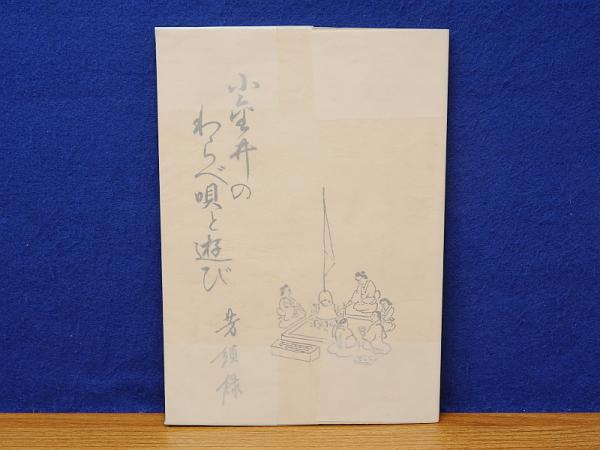 小金井の
わらべ唄と遊び
芳須緑